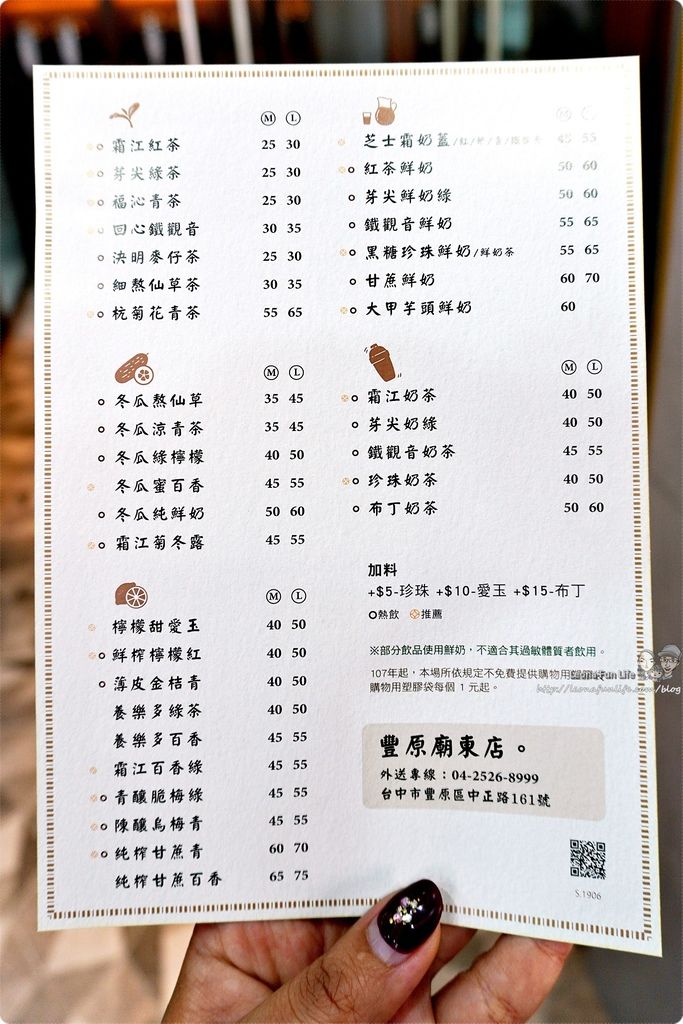 Ⓜ Ⓛ
霜江紅茶 25 30
芽尖綠茶 25 30
福沁青茶 25 30
回心鐵觀音 30 35
決明麥仔茶 25 30
細熬仙草茶 30 35
杭菊花青茶 55 65
Ⓜ Ⓛ
冬瓜熬仙草 35 45
冬瓜涼青茶 35 45
冬瓜綠檸檬 40 50
冬瓜蜜百香 45 55
冬瓜純鮮奶 50 60
霜江菊冬露 45 55
Ⓜ Ⓛ
檸檬甜愛玉 40 50
鮮榨檸檬紅 40 50
薄皮金桔青 40 50
養樂多綠茶 40 50
養樂多百香 45 55
霜江百香綠 45 55
青釀脆梅綠 45 55
陳釀烏梅青 45 55
純榨甘蔗青 60 70
純榨甘蔗百香 65 75
Ⓜ Ⓛ
芝士霜奶蓋 45 55
紅茶鮮奶 50 60
芽尖鮮奶綠 50 60
鐵觀音鮮奶 55 65
黑糖珍珠鮮奶/鮮奶茶 55 65
甘蔗鮮奶 60 70
大甲芋頭鮮奶 60
Ⓜ Ⓛ
霜江奶茶 40 50
芽尖奶綠 40 50
鐵觀音奶茶 45 55
珍珠奶茶 40 50
布丁奶茶 50 60
加料
+$5-珍珠 +$10-愛玉 +$15-布丁
熱飲 推薦
※部分飲品使用鮮奶，不適合其過敏體質者飲用。
107年起，本場所依規定不免費提供購物用
購物用塑膠袋每個 1 元起。
Fun Life
http://laomafunlife.com/blog
豐原廟東店。
外送專線：04-2526-8999
台中市豐原區中正路161號
S.1906